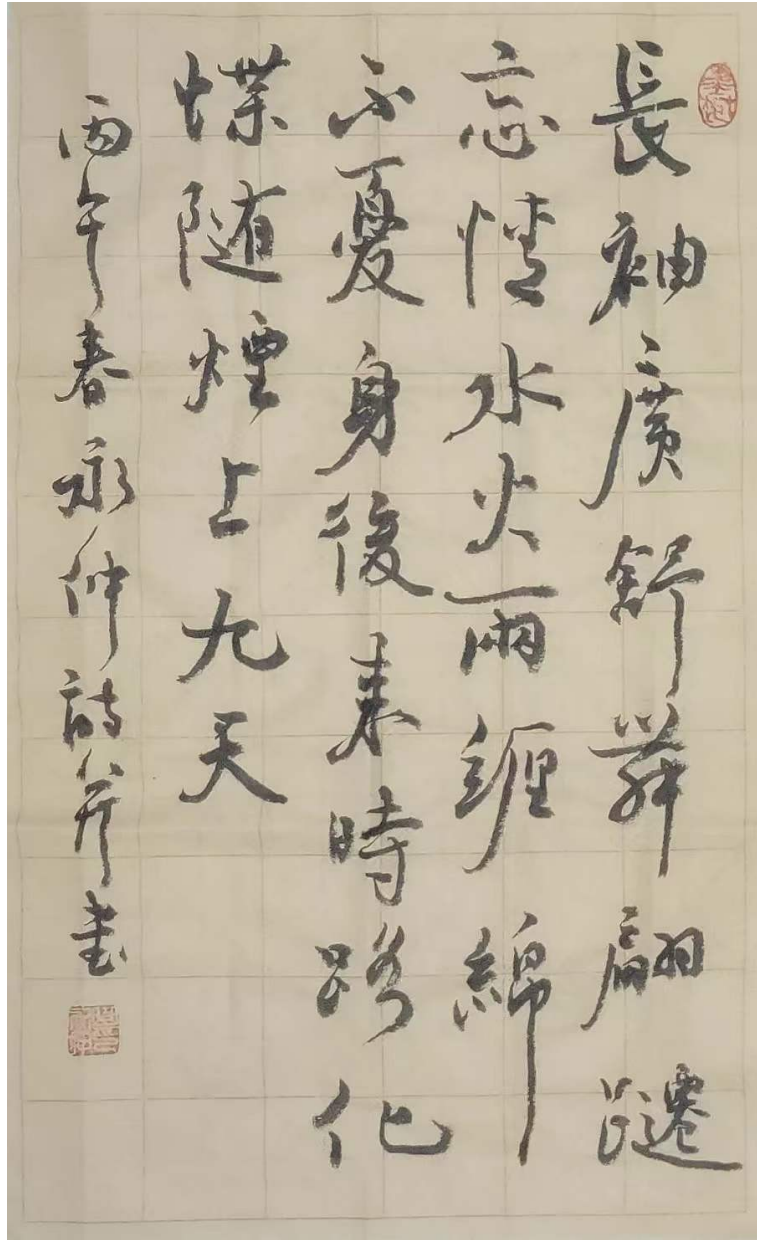 長袖廣舒舞翩躚
忘情水火兩纏綿
不憂身後來時路化
蝶随煙上九天
丙午春永仲詩并書